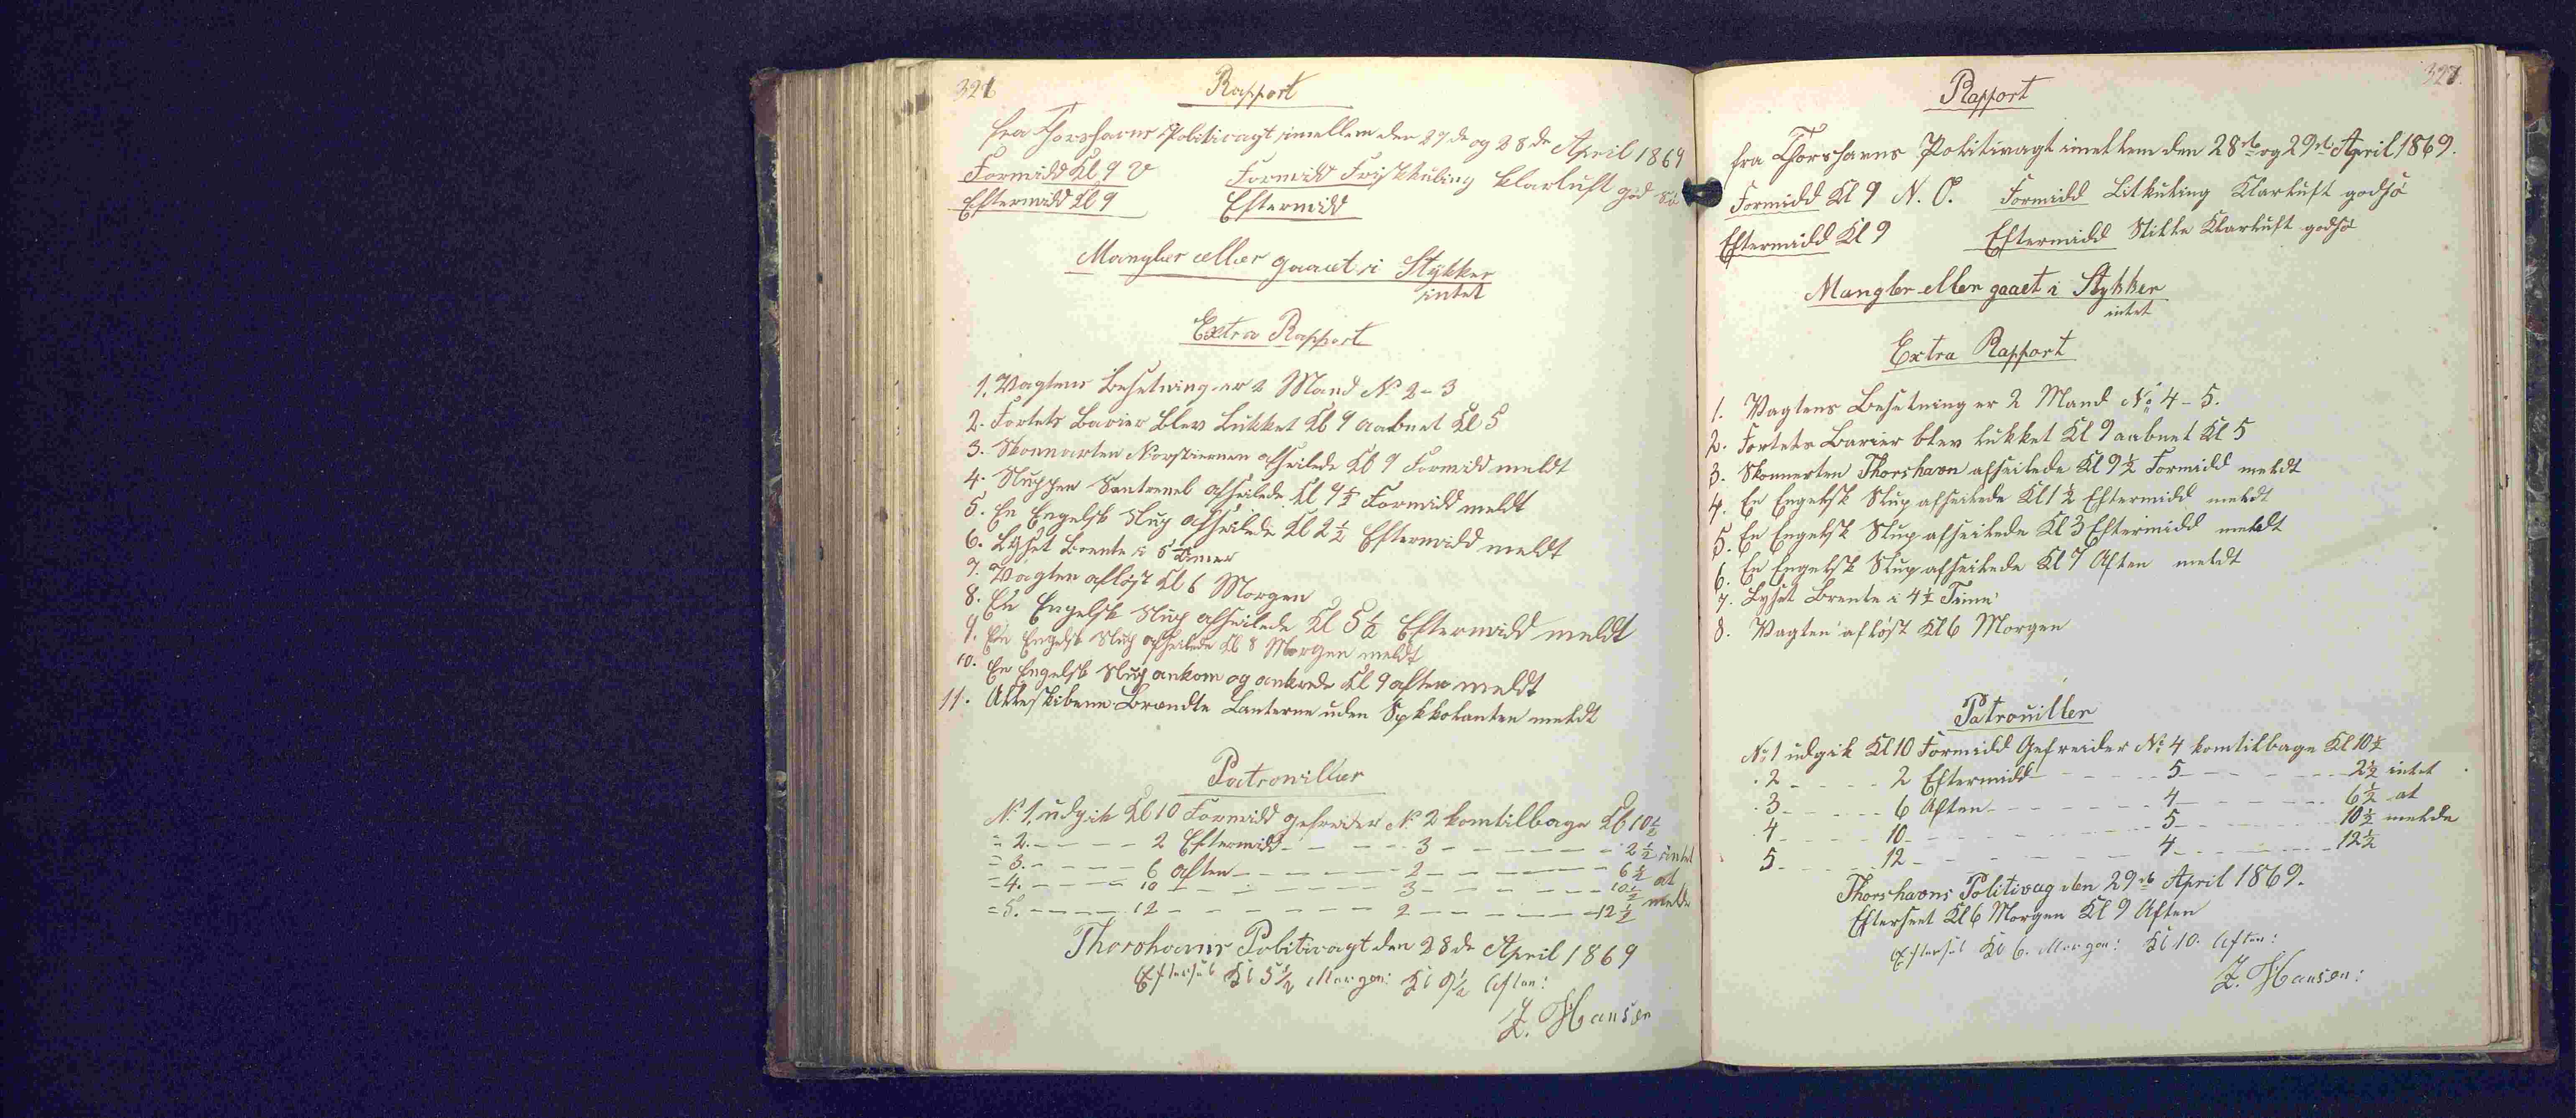 321
Rapport
fra Thorshavns Politivagt imellem den 27de og 28de April 1869
Formidd Kl 9 V Formidd Friskkuling klarluft god sö
Eftermidd Kl 9 Eftermidd
Mangler eller gaaet i Stykker
intet
Extra Rapport
1. Vagtens Besetning er 2 Mand No 2-3
2. Fortets Barier blev Lukket Kl 9 aabnet Kl 5
3. Skonnarten Norstiernen afseilede Kl 9 Formidd meldt
4. Sluppen afseilede Kl 9½ Formidd meldt
5. En Engelsk Slup afseilede Kl 2½ Eftermidd meldt
6. Lyset Brente i 5 Timer
7. Vagten aflöst Kl 6 Morgen
8. En Engelsk Slup afseilede Kl 5½ Eftermidd meldt
9. En Engelsk Slup afseilede Kl 8 Morgen meldt
10. En Engelsk Slup ankom og ankrede Kl 9 aften meldt
11. Alleskibene Brændte Lanterne uden meldt
Patrouiller
No 1. udgik Kl 10 Formidd gefreider No 2 komtilbage Kl 10½
= 2. - - - - 2 Eftermidd - - - - 3 - - - - - 2½ intet
= 3. - - - - 6 aften - - - - 2 - - - - - 6½ at
= 4. - - - - 10 - - - - - 3 - - - - - 10½ melde
= 5. - - - - 12 - - - - - 2 - - - - - 12½
Thorshavns Politivagt den 28de April 1869
Efterset Kl 5½ Morgen: Kl 9½ Aften:
Z. Hansen
327.
Rapport
fra Thorshavns Politivagt imellem den 28de og 29de April 1869.
Formidd Kl 9 N. O. Formidd Litkuling Klarluft godsö
Eftermidd Kl 9 Eftermidd Stille Klarluft godsö
Mangler eller gaaet i Stykker
intet
Extra Rapport
1. Vagtens Besetning er 2 Mand No 4-5.
2. Fortets Barier blev lukket Kl 9 aabnet Kl 5
3. Skonnerten Thorshavn afseilede Kl 9½ Formidd meldt
4. En Engelsk Slup afseilede Kl 1½ Eftermidd meldt
5. En Engelsk Slup afseilede Kl 3 Eftermidd meldt
6. En Engelsk Slup afseilede Kl 7 Aften meldt
7. Lyset Brente i 4½ Time
8. Vagten aflöst Kl 6 Morgen
Patrouiller
No 1 udgik Kl 10 Formidd Gefreider No 4 komtilbage Kl 10½
· 2 - - - - 2 Eftermidd - - - - 5 - - - - 2½ intet
· 3 - - - - 6 Aften - - - - 4 - - - - 6½ at
4 - - - - 10 - - - - 5 - - - - 10½ melde
5 - - - - 12 - - - - 4 - - - - 12½
Thorshavns Politivag den 29de April 1869.
Efterseet Kl 6 Morgen Kl 9 Aften
Efterset Kl 6. Morgen: Kl 10. Aften:
Z. Hansen: